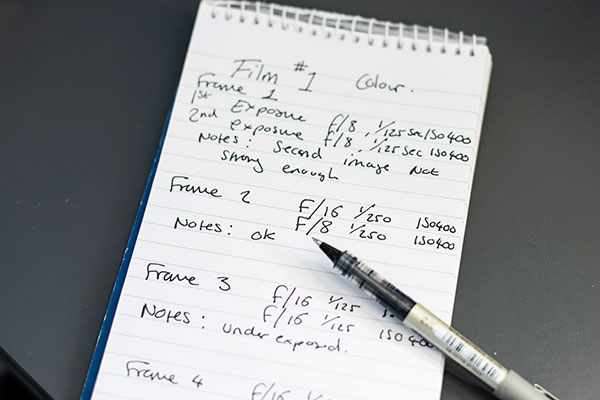 Film #1 Colour.
Frame 1
1st Exposure f/8, 1/125 sec ISO400
2nd exposure f/8, 1/125 sec ISO400
Notes: Second image not
strong enough
Frame 2 F/16 1/250 ISO400
F/8 1/250 ISO400
Notes: ok
Frame 3 f/16 1/125
f/16 1/125 ISO400
Notes: underexposed.
Frame 4 f/16